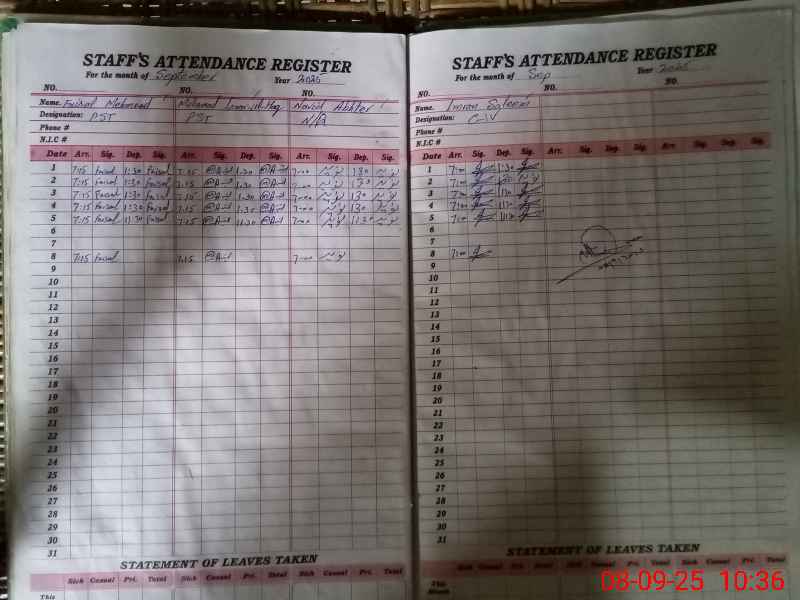 STAFF'S ATTENDANCE REGISTER
For the month of September Year 2025
NO. NO. NO.
Name. Faisal Mehmood Naveed Akhter
Designation: PST PST N/Q
Phone #
N.I.C #
Date Arr. Sig. Dep. Sig. Arr. Sig. Dep. Sig. Arr. Sig. Dep. Sig.
1 7:15 Faisal 1:30 Faisal 7:15 1:30 7:00 130
2 7:15 Faisal 1:30 Faisal 7:15 1:30 7:00 130
3 7:15 Faisal 1:30 Faisal 7:15 1:30 7:00 130
4 7:15 Faisal 1:30 Faisal 7:15 1:30 7:00 130
5 7:15 Faisal 11:30 Faisal 7:15 11:30 7:00 11:30
6
7
8 7:15 Faisal 7:15 7:00
9
10
11
12
13
14
15
16
17
18
19
20
21
22
23
24
25
26
27
28
29
30
31
STATEMENT OF LEAVES TAKEN
Sick Casual Pri. Total Sick Casual Pri. Total Sick Casual Pri. Total
This
STAFF'S ATTENDANCE REGISTER
For the month of Sep Year 2025
NO. NO. NO.
Name. Imran Saleem
Designation: C-IV
Phone #
N.I.C #
Date Arr. Sig. Dep. Sig. Arr. Sig. Dep. Sig. Arr. Sig. Dep. Sig.
1 7:00 1:30
2 7:00
3 7:00 1:30
4 7:00
5 7:00
6
7
8 7:00
9
10
11
12
13
14
15
16
17
18
19
20
21
22
23
24
25
26
27
28
29
30
31
STATEMENT OF LEAVES TAKEN
Sick Casual Pri. Total Sick Casual Pri. Total Sick Casual Pri. Total
This
Month
08-09-25 10:36